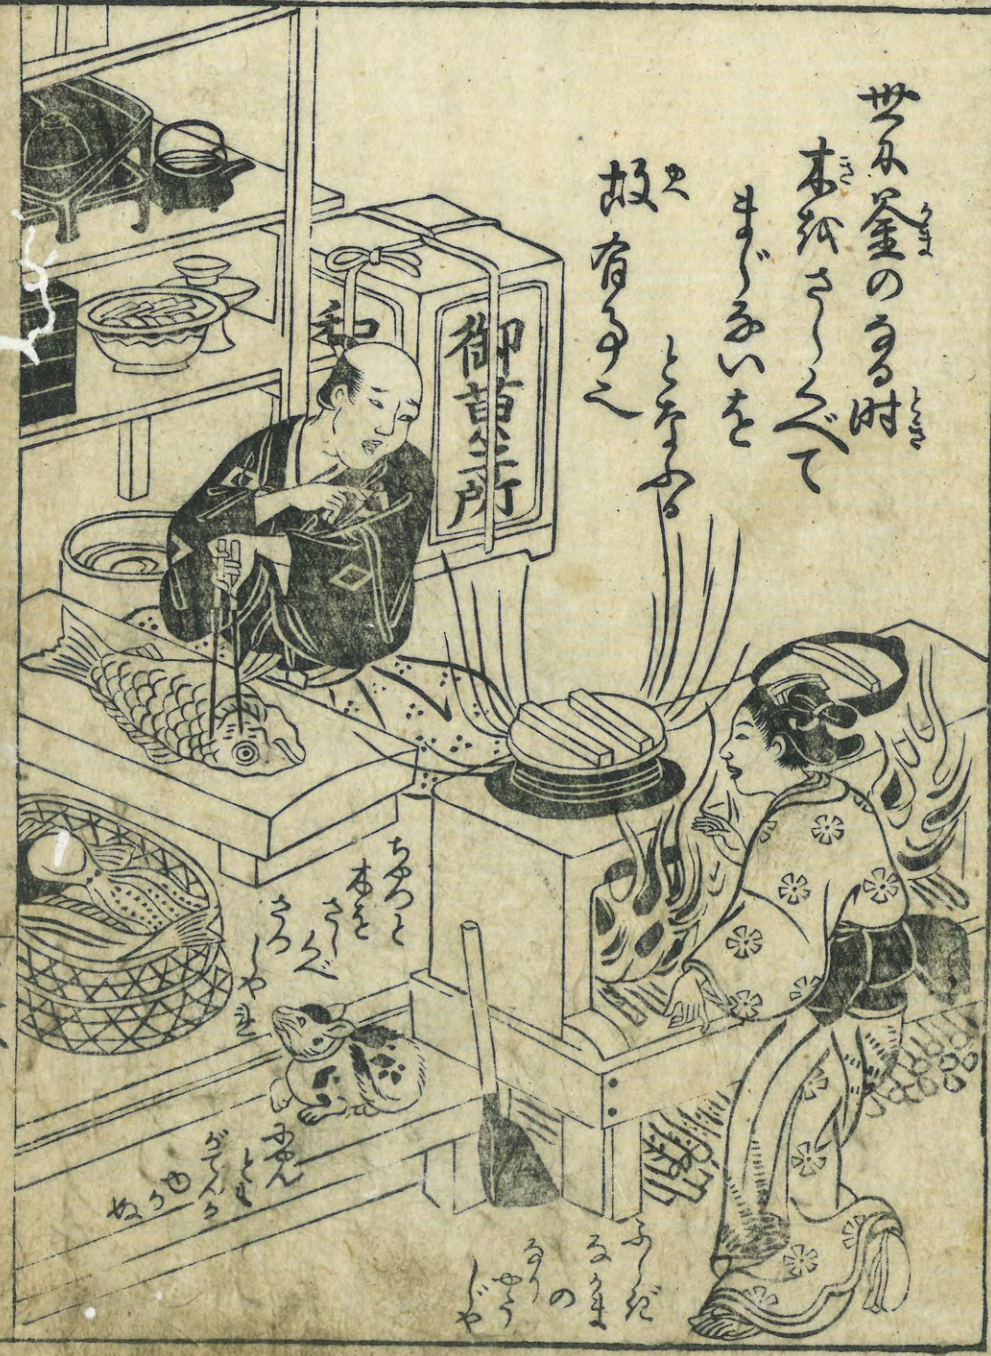 世に釜のなる時
木をさしくべて
まじないを
となふる
故有事也
御菓子所
和
ちよつと
木を
さしくべ
さつ
しやれ
なん
とも
がてんが
ゆか
ぬ
ふしぎ
なかま
の
なり
やう
じや